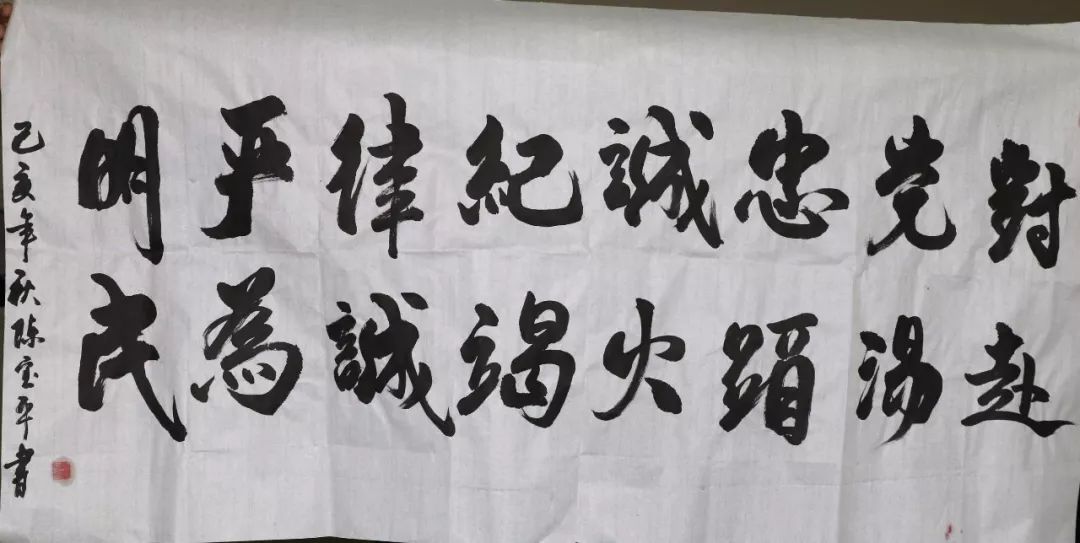 對党忠誠紀律严明
赴湯蹈火竭誠為民
己亥年秋陈宝平書